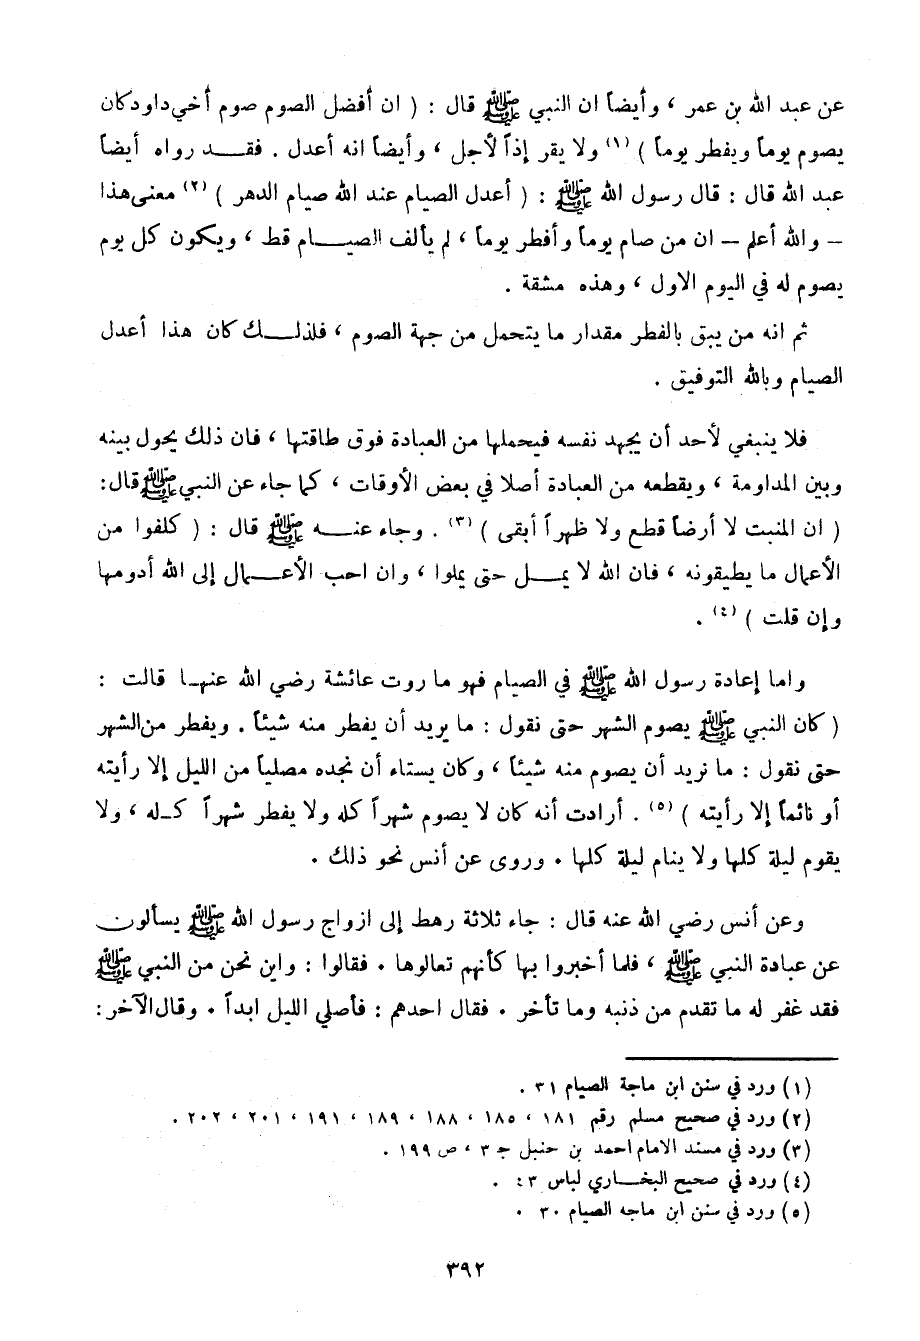 عن عبد الله بن عمر ، وأيضاً ان النبي ﷺ قال : ( ان أفضل الصوم صوم أخي داود كان
يصوم يوماً ويفطر يوماً ) (١) ولا يقر إذاً لأجل ، وأيضاً انه أعدل . فقـــد رواه أيضاً
عبد الله قال : قال رسول الله ﷺ : ( أعدل الصيام عند الله صيام الدهر ) (٢) معنى هذا
– والله أعلم – ان من صام يوماً وأفطر يوماً ، لم يألف الصيـــام قط ، ويكون كل يوم
يصوم له في اليوم الاول ، وهذه مشقة .
ثم انه من يبق بالفطر مقدار ما يتحمل من جهة الصوم ، فلذلـــك كان هذا أعدل
الصيام وبالله التوفيق .
فلا ينبغي لأحد أن يجهد نفسه فيحملها من العبادة فوق طاقتها ، فان ذلك يحول بينه
وبين المداومة ، ويقطعه من العبادة أصلا في بعض الأوقات ، كما جاء عن النبي ﷺ قال:
( ان المنبت لا أرضاً قطع ولا ظهراً أبقى ) (٣) . وجاء عنـــه ﷺ قال : ( كلفوا من
الأعمال ما يطيقونه ، فان الله لا يمـــل حتى يملوا ، وان احب الأعـــمال إلى الله أدومها
وإن قلت ) (٤) .
واما إعادة رسول الله ﷺ في الصيام فهو ما روت عائشة رضي الله عنهـا قالت :
( كان النبي ﷺ يصوم الشهر حتى نقول : ما يريد أن يفطر منه شيئاً . ويفطر من الشهر
حتى نقول : ما نريد أن يصوم منه شيئا ، وكان يستاء أن نجده مصلياً من الليل إلا رأيته
أو نائماً إلا رأيته ) (٥) . أرادت أنه كان لا يصوم شهراً كله ولا يفطر شهراً كـله ، ولا
يقوم ليلة كلها ولا ينام ليلة كلها . وروى عن أنس نحو ذلك .
وعن أنس رضي الله عنه قال : جاء ثلاثة رهط إلى ازواج رسول الله ﷺ يسألون
عن عبادة النبي ﷺ ، فلما أخبروا بها كأنهم تعالوها . فقالوا : واين نحن من النبي ﷺ
فقد غفر له ما تقدم من ذنبه وما تأخر . فقال احدهم : فأصلي الليل ابداً . وقال الآخر :
(١) ورد في سنن ابن ماجة الصيام ٣١ .
(٢) ورد في صحيح مسلم رقم ١٨١ ، ١٨٥ ، ١٨٨ ، ١٨٩ ، ١٩١ ، ٢٠١ ، ٢٠٢ .
(٣) ورد في مسند الامام احمد بن حنبل ج ٣ ، ص ١٩٩ .
(٤) ورد في صحيح البخـــاري لباس ٤٣ .
(٥) ورد في سنن ابن ماجه الصيام ٣٠ .
٣٩٢